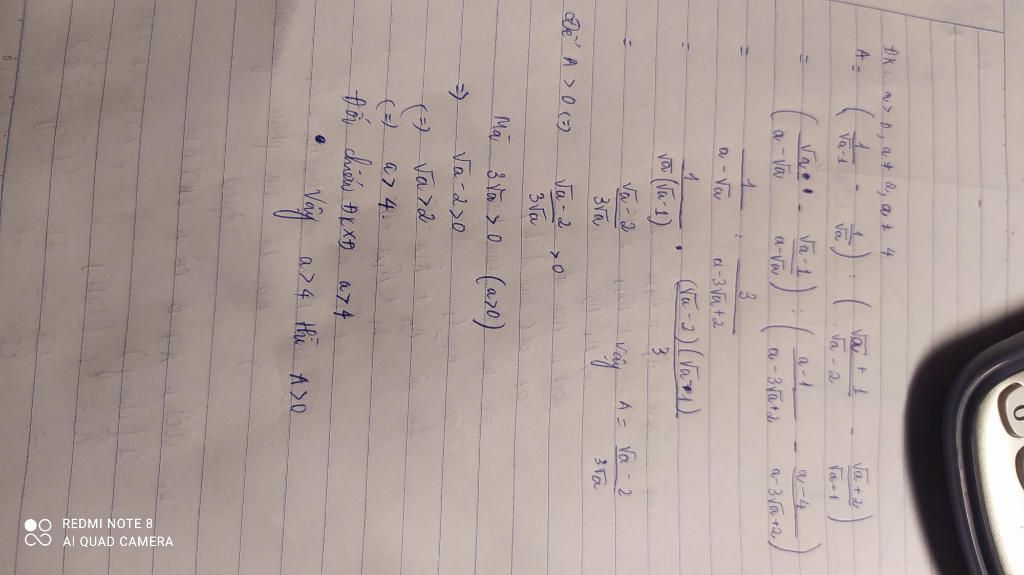 ĐK: a > 0, a ≠ 2, a ≠ 4
A = ( 1/(√a-1) - 1/√a ) : ( (√a + 1)/(√a - 2) - (√a+2)/(√a-1) )
= ( √a/(a-√a) - (√a-1)/(a-√a) ) : ( (a-1)/(a-3√a+2) - (a-4)/(a-3√a+2) )
= 1/(a-√a) : 3/(a-3√a+2)
= 1/(√a(√a-1)) . (√a-2)(√a-1)/3
= (√a-2)/(3√a) Vậy A = (√a-2)/(3√a)
Để A > 0 (=) (√a-2)/(3√a) > 0
Mà 3√a > 0 (a>0)
=> √a-2>0
(=) √a>2
(=) a>4
Đối chiếu ĐKXĐ a>4
Vậy a>4 thì A>0
REDMI NOTE 8
AI QUAD CAMERA